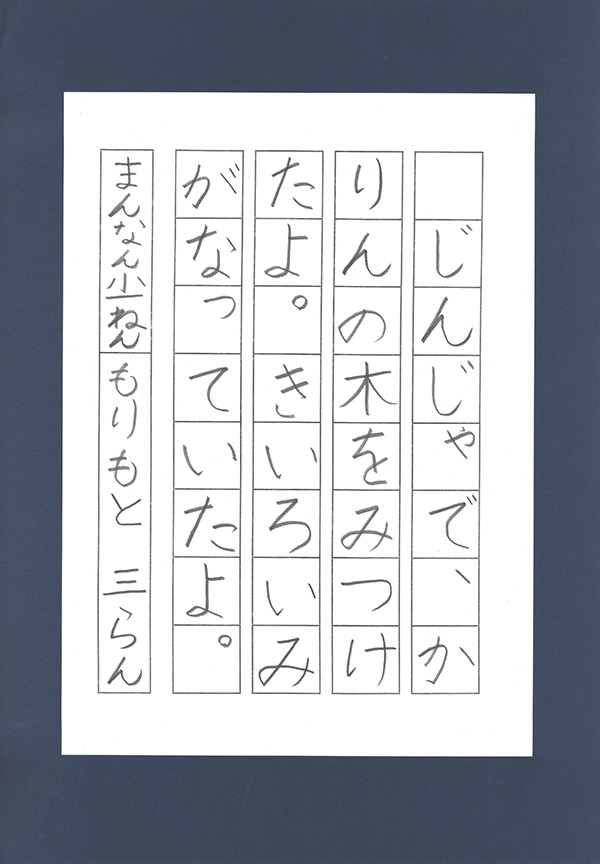 じんじゃで、か
りんの木をみつけ
たよ。きいろいみ
がなっていたよ。
まんなん小一ねん もりもと 三らん